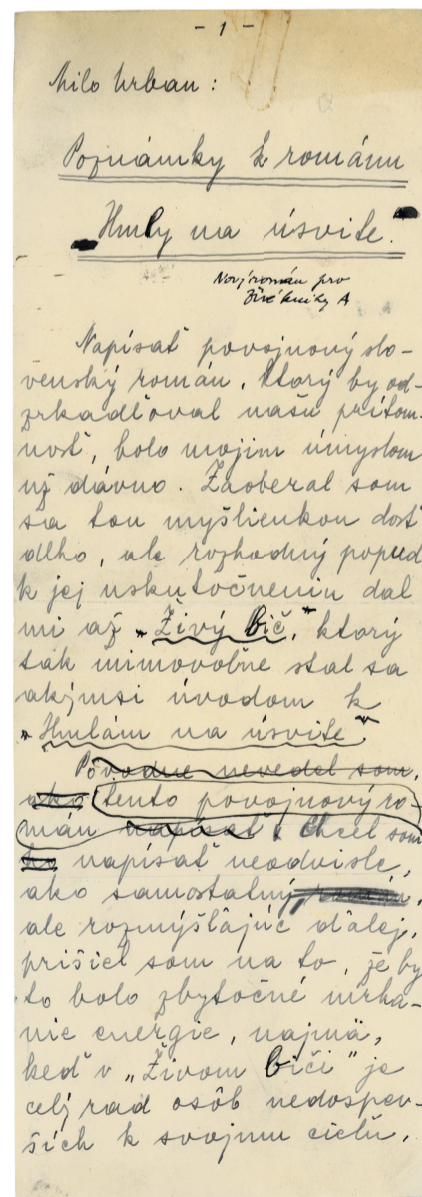 - 1 -
Milo Urban:
Poznámky k románu
„Hmly na úsvite."
Nový román pro
Živé knihy A
Napísať povojnový slo-
venský román, ktorý by od-
zrkadľoval našu prítom-
nosť, bolo mojim úmyslom
už dávno. Zaoberal som
sa tou myšlienkou dosť
dlho, ale rozhodný popud
k jej uskutočneniu dal
mi až „Živý bič," ktorý
tak mimovoľne stal sa
akýmsi úvodom k
„Hmlám na úsvite"
Pôvodne nevedel som,
ako tento povojnový ro-
mán napísať. Chcel som
ho napísať neodvisle,
ako samostatný román,
ale rozmýšľajúc ďalej,
prišiel som na to, že by
to bolo zbytočné mrha-
nie energie, najmä,
keď v „Živom biči" je
celý rad osôb nedospev-
ších k svojmu cieľu,